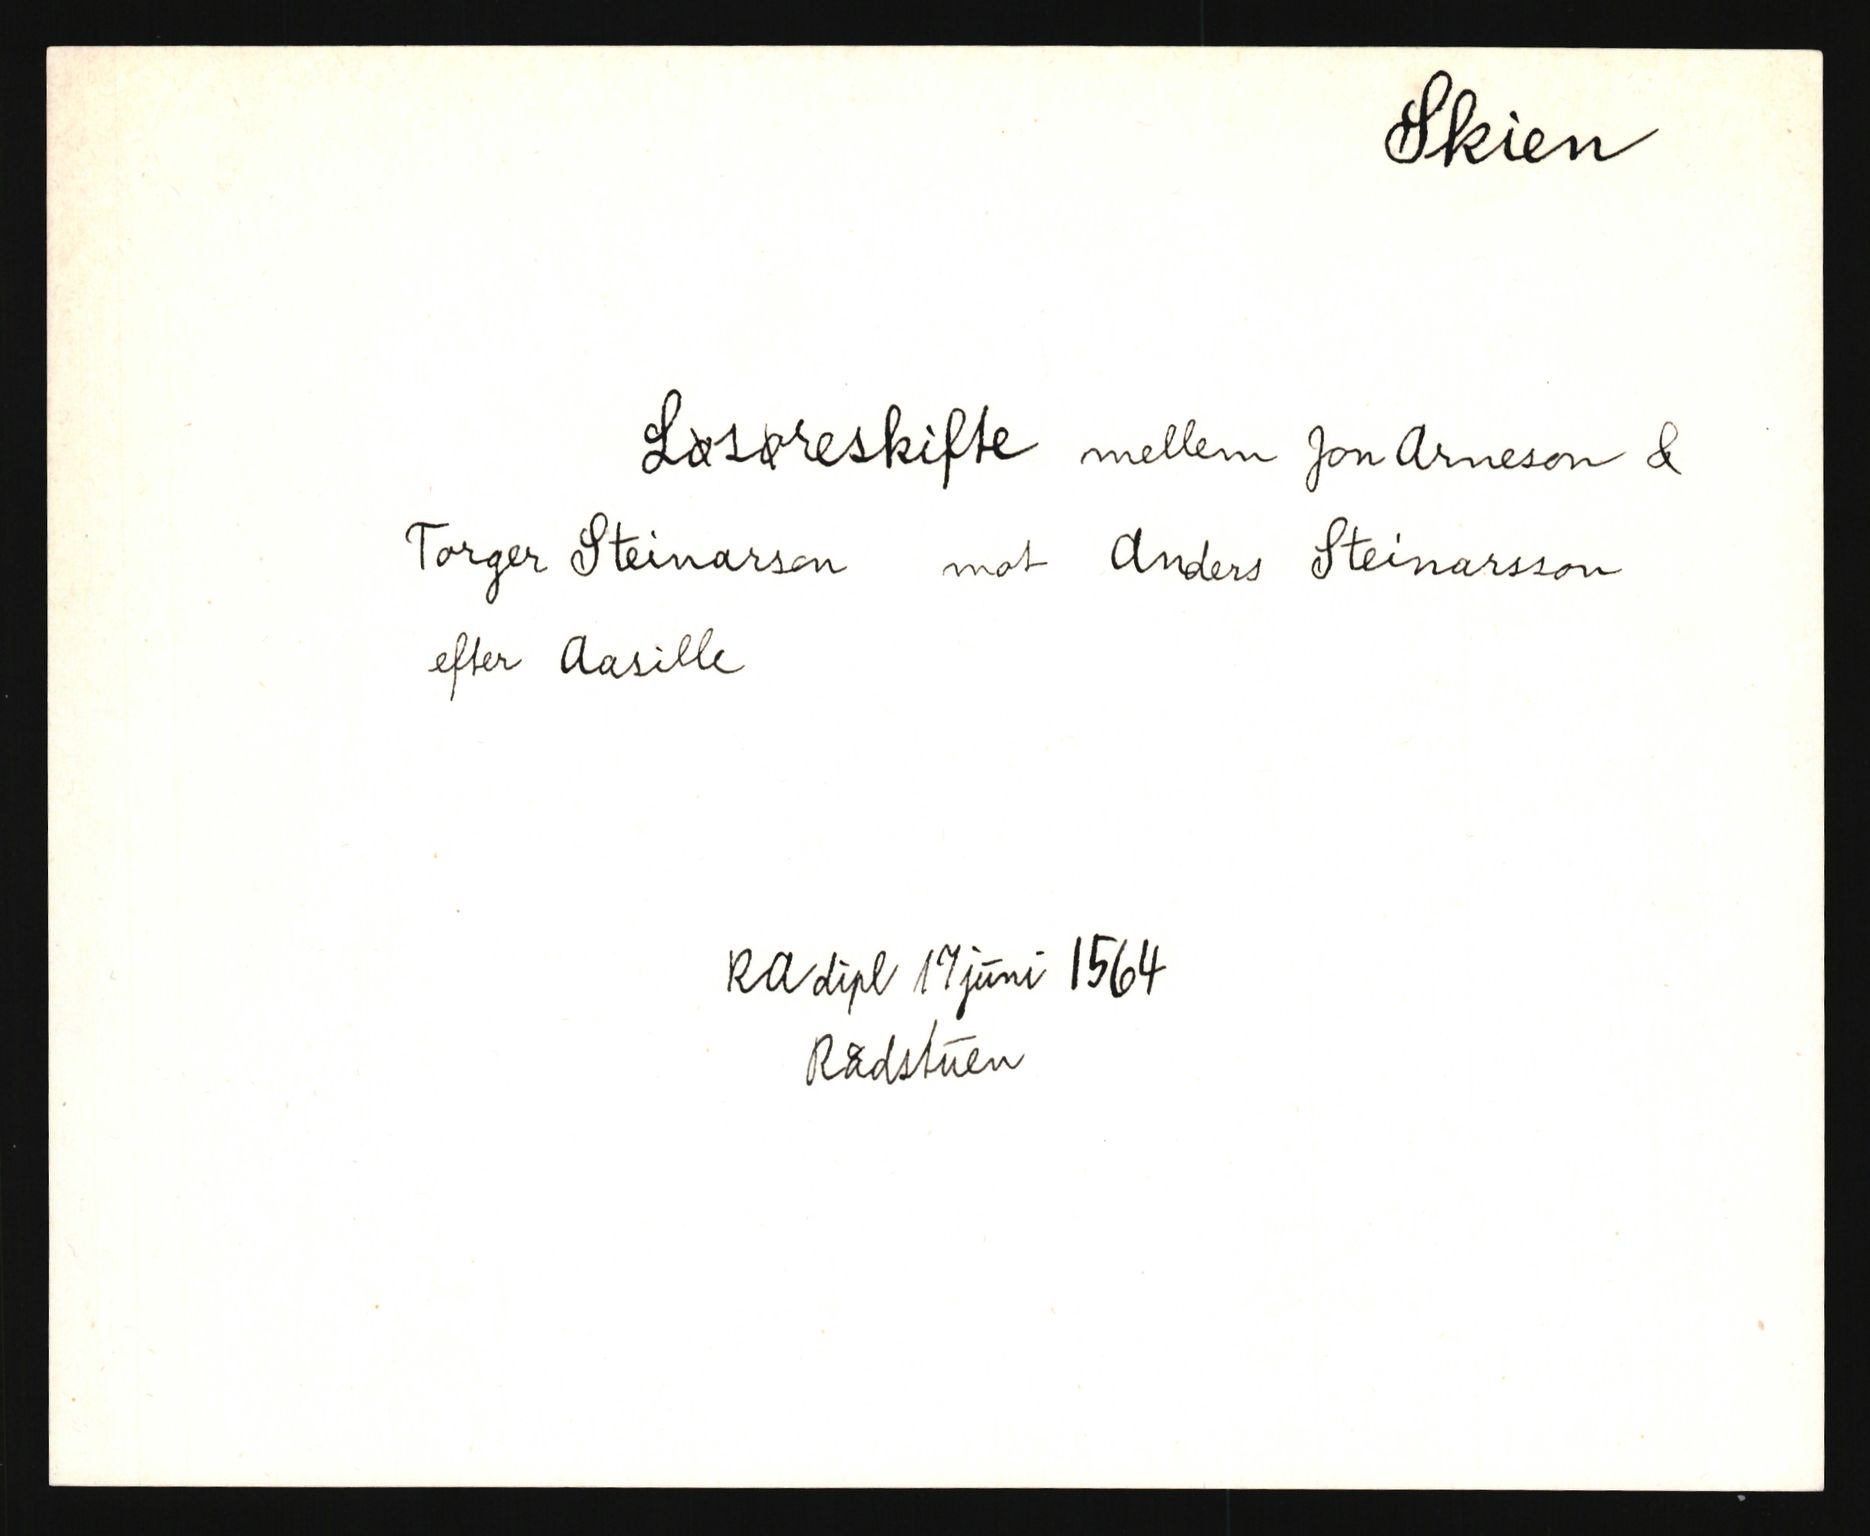 Skien
Løsøreskifte mellem Jon Arneson &
Torger Steinarson mot Anders Steinarsson
efter Aasille
RA dipl 17 juni 1564
Rådstuen